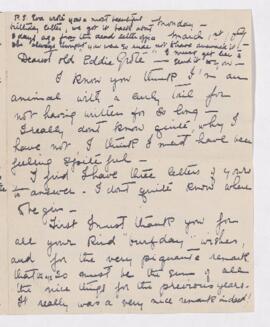 P.S. Eva wrote you a most beautiful
birthday letter, we got it back about
5 days ago from the dead letter office
Monday –
March 1st,
Dearest old Eddie Grote –
send it to you –
I know you think I'm an
animal with a curly tail for
not having written for so long –
I really don't know quite why I
have not, I think I must have been
feeling spiteful –
I find I have three letters of yours
to answer. I don't quite know where
to begin –
First I must thank you for
all your kind "ourfday" wishes,
and for the very piquante remark
that so must be the sum of all
the nice things for the previous years.
It really was a very nice remark indeed!